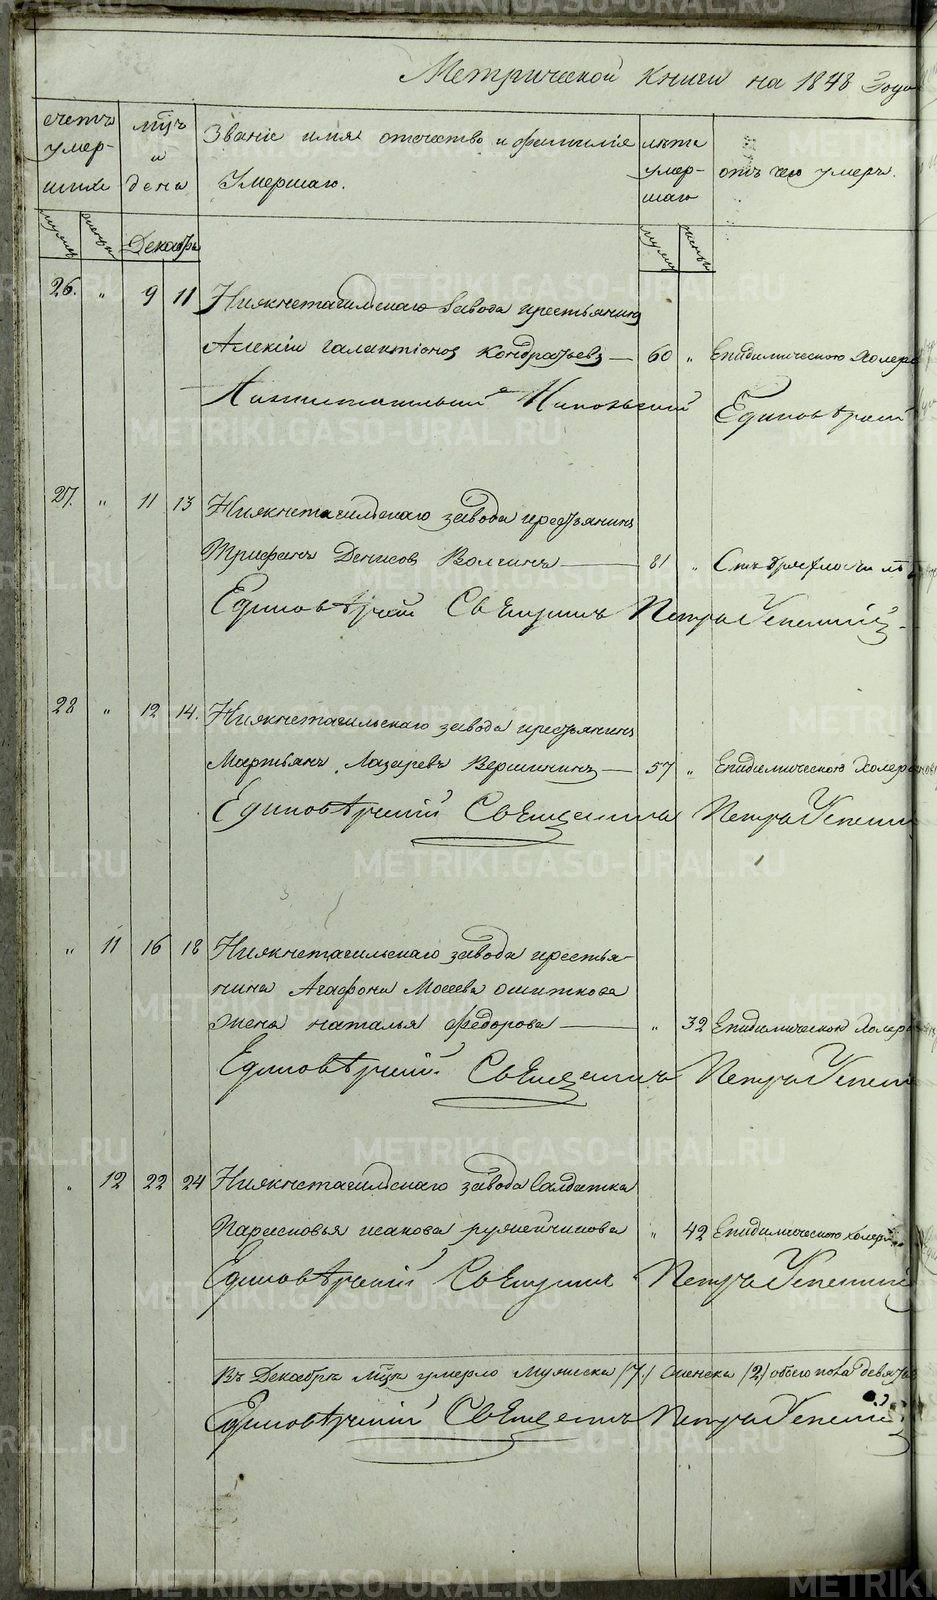 Метрической книги на 1848 года
счетъ умер- шихъ
мцъ и день
Званіе имя отечество и фамилія умершаго.
лѣта умер- шаго
отъ чего умеръ.
Декабрь
26. „ 9 11 Нижнетагильскаго завода крестьянинъ
Алексій Галактіоновъ Кондратьевъ — 60 „ Епидимическою Холерою
Единовѣрческій
27. „ 11 13 Нижнетагильскаго завода крестьянинъ
Трифанъ Денисовъ Волгинъ — 81 „
Единовѣрческій Священникъ Петръ Успенскій
28 „ 12 14. Нижнетагильскаго завода крестьянинъ
Мартьянъ Лазаревъ Вершининъ — 57 „ Епидимическою Холерою
Единовѣрческій Священникъ Петръ Успенскій
„ 11 16 18 Нижнетагильскаго завода крестья-
нина Агафона Мосеева Ошиткова
жена Наталья Федорова — „ 32 Епидимическою Холерою
Единовѣрческій Священникъ Петръ Успенскій
„ 12 22 24 Нижнетагильскаго завода Салдатка
Парасковья Исакова — „ 42 Епидимическою холерою
Единовѣрческій Священникъ Петръ Успенскій
Въ Декабрѣ мцѣ умерло Мужеска (7) Женска (2) обоего пола девять
Единовѣрческій Священникъ Петръ Успенскій
METRIKI.GASO-URAL.RU